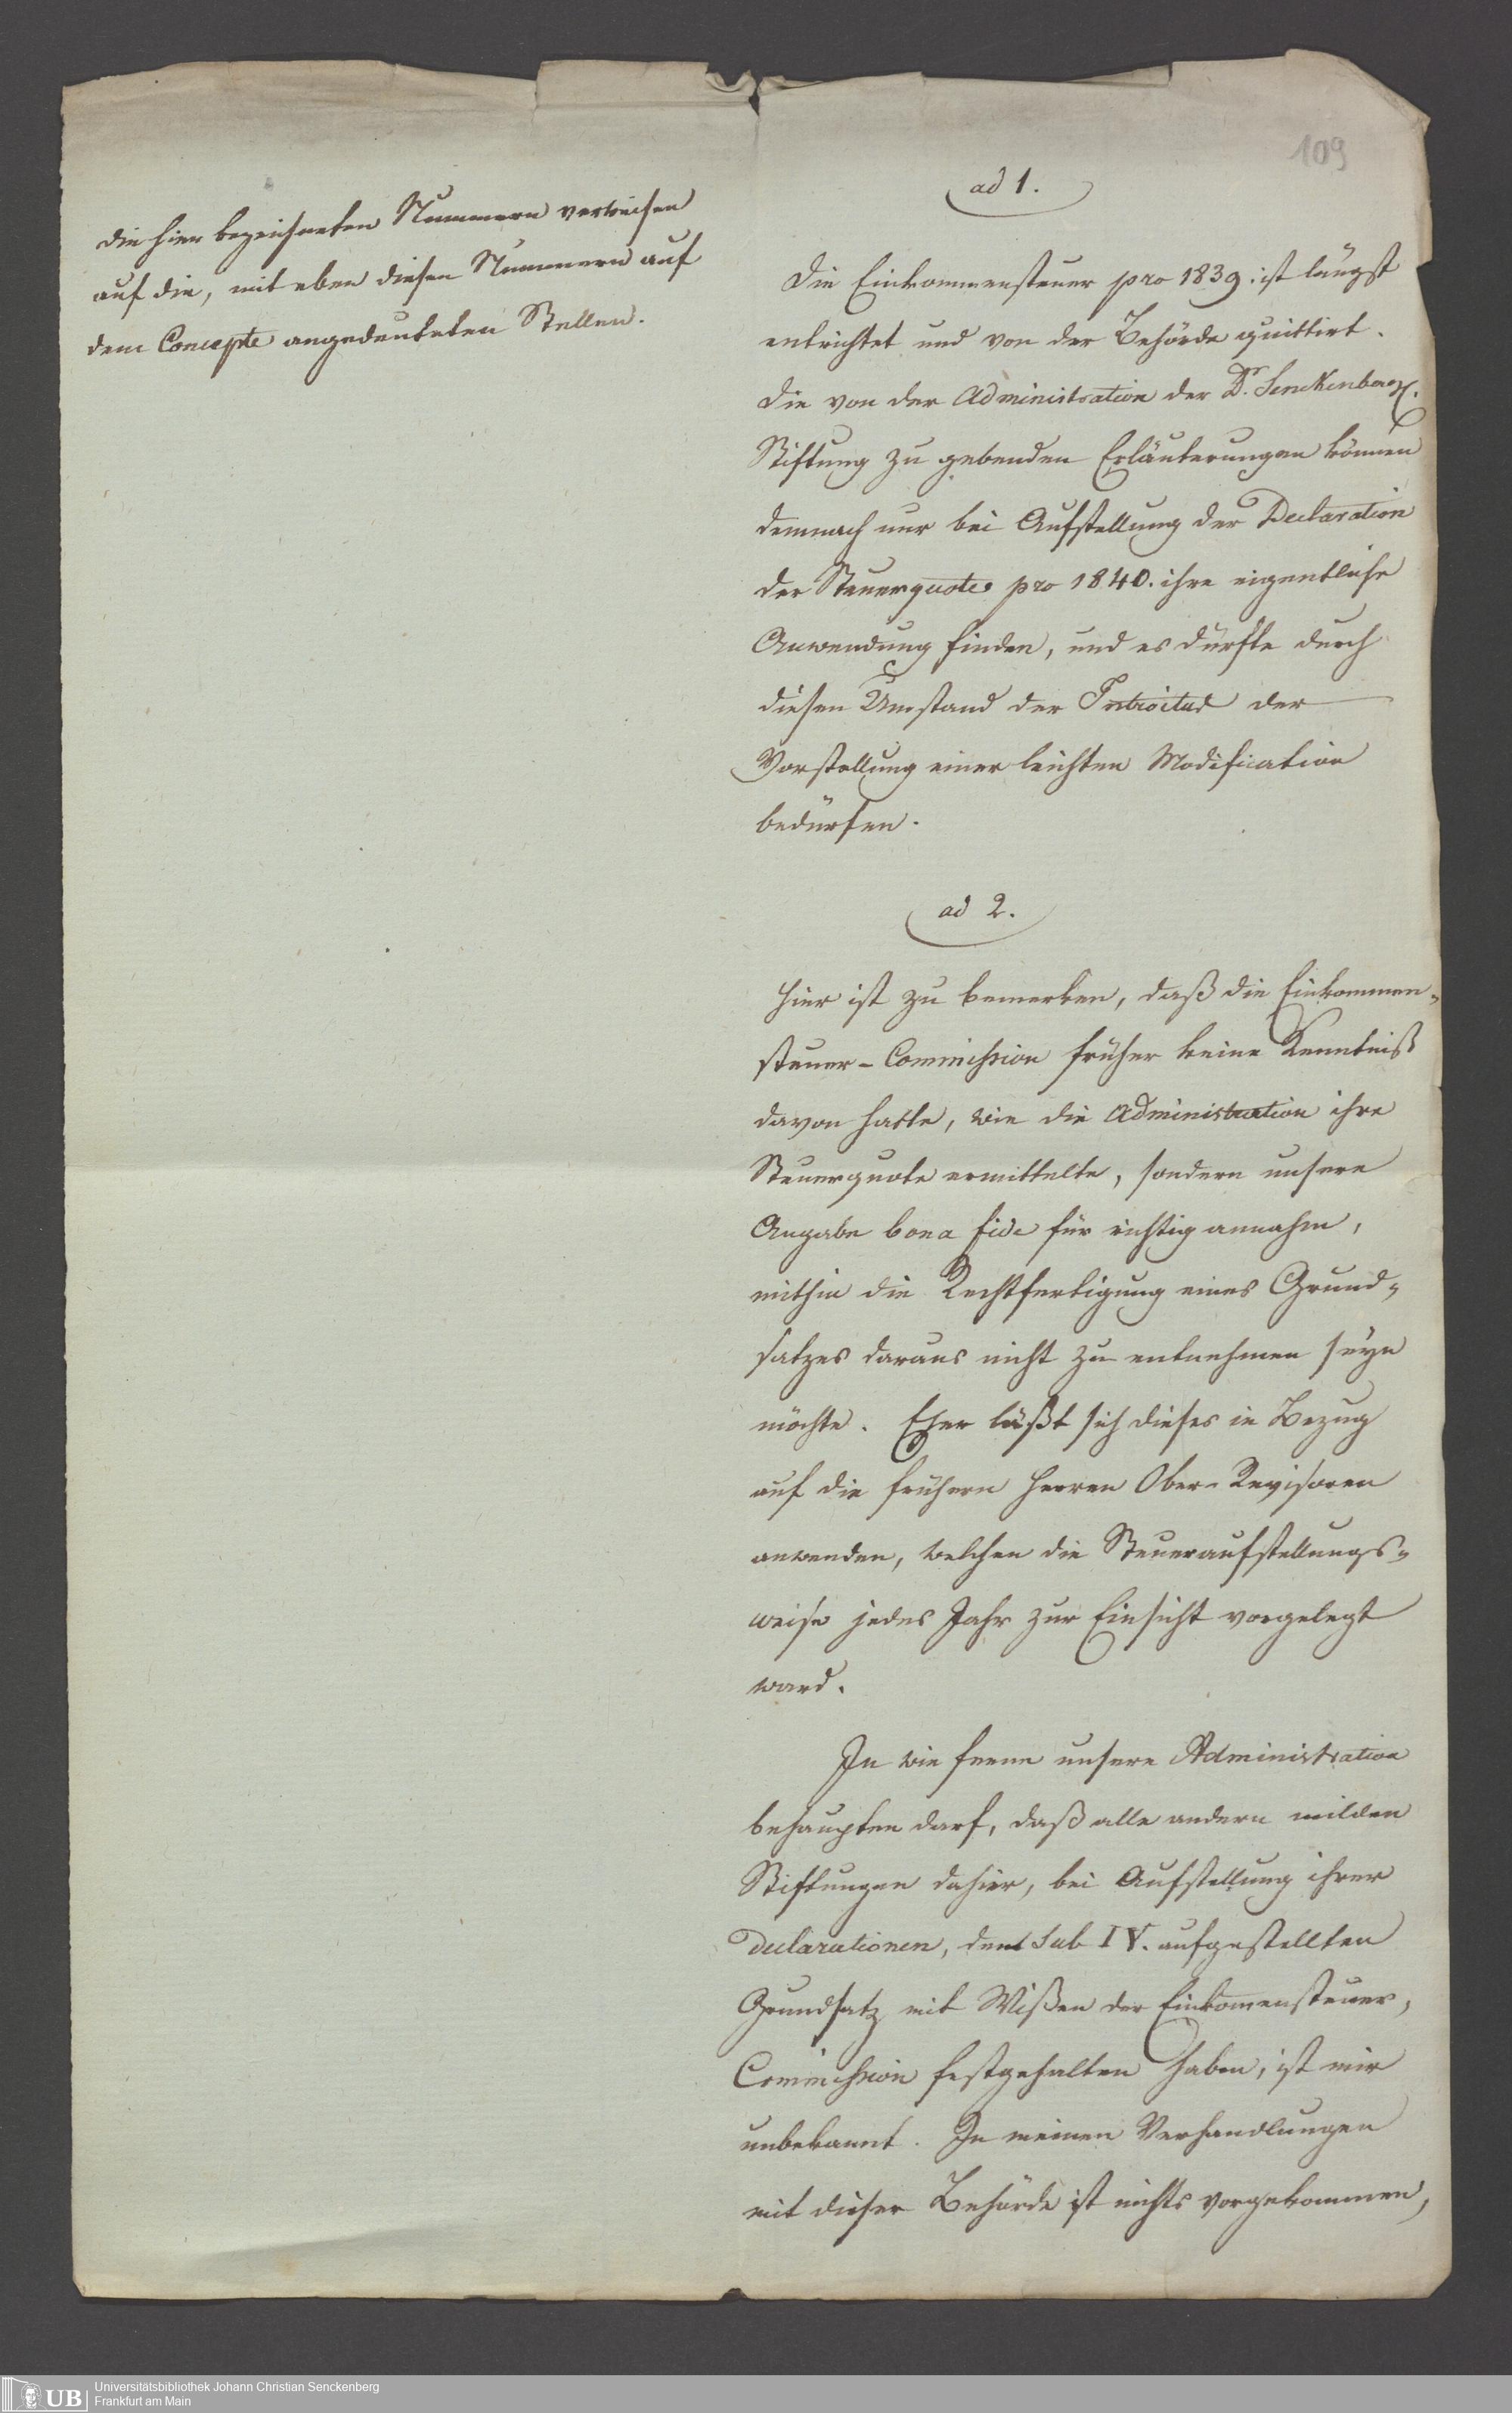 109
die hier bezeichneten Nummern verweisen
auf die, mit eben diesen Nummern auf
dem Concepte angedeuteten Stellen.
ad 1.
Die Einkommensteuer pro 1839. ist längst
entrichtet und von der Behörde quittirt.
Die von der Administration der Dr. Senckenberg.
Stiftung zu gebenden Erläuterungen können
demnach nur bei Aufstellung der Declaration
der Steuerquote pro 1840. ihre eigentliche
Anwendung finden, und es dürfte durch
diesen Umstand der Introitus der
Vorstellung einer leichten Modification
bedürfen.
ad 2.
Hier ist zu bemerken, daß die Einkommen-
steuer-Commission früher keine Kenntniß
davon hatte, wie die Administration ihre
Steuerquote ermittelte, sondern unsere
Angabe bona fide für richtig annahm,
mithin die Rechtfertigung eines Grund-
satzes daraus nicht zu entnehmen seyn
möchte. Eher läßt sich dieses in Bezug
auf die frühern Herren Ober-Revisoren
anwenden, welchen die Steueraufstellungs-
weise jedes Jahr zur Einsicht vorgelegt
ward.
In wie ferne unsere Administration
behaupten darf, daß alle andern milden
Stiftungen dahier, bei Aufstellung ihrer
Declarationen, den sub IV. aufgestellten
Grundsatz mit Wißen der Einkomensteuer,
Commission festgehalten haben, ist mir
unbekannt. In meinen Verhandlungen
mit dieser Behörde ist nichts vorgekommen,
UB
Universitätsbibliothek Johann Christian Senckenberg
Frankfurt am Main